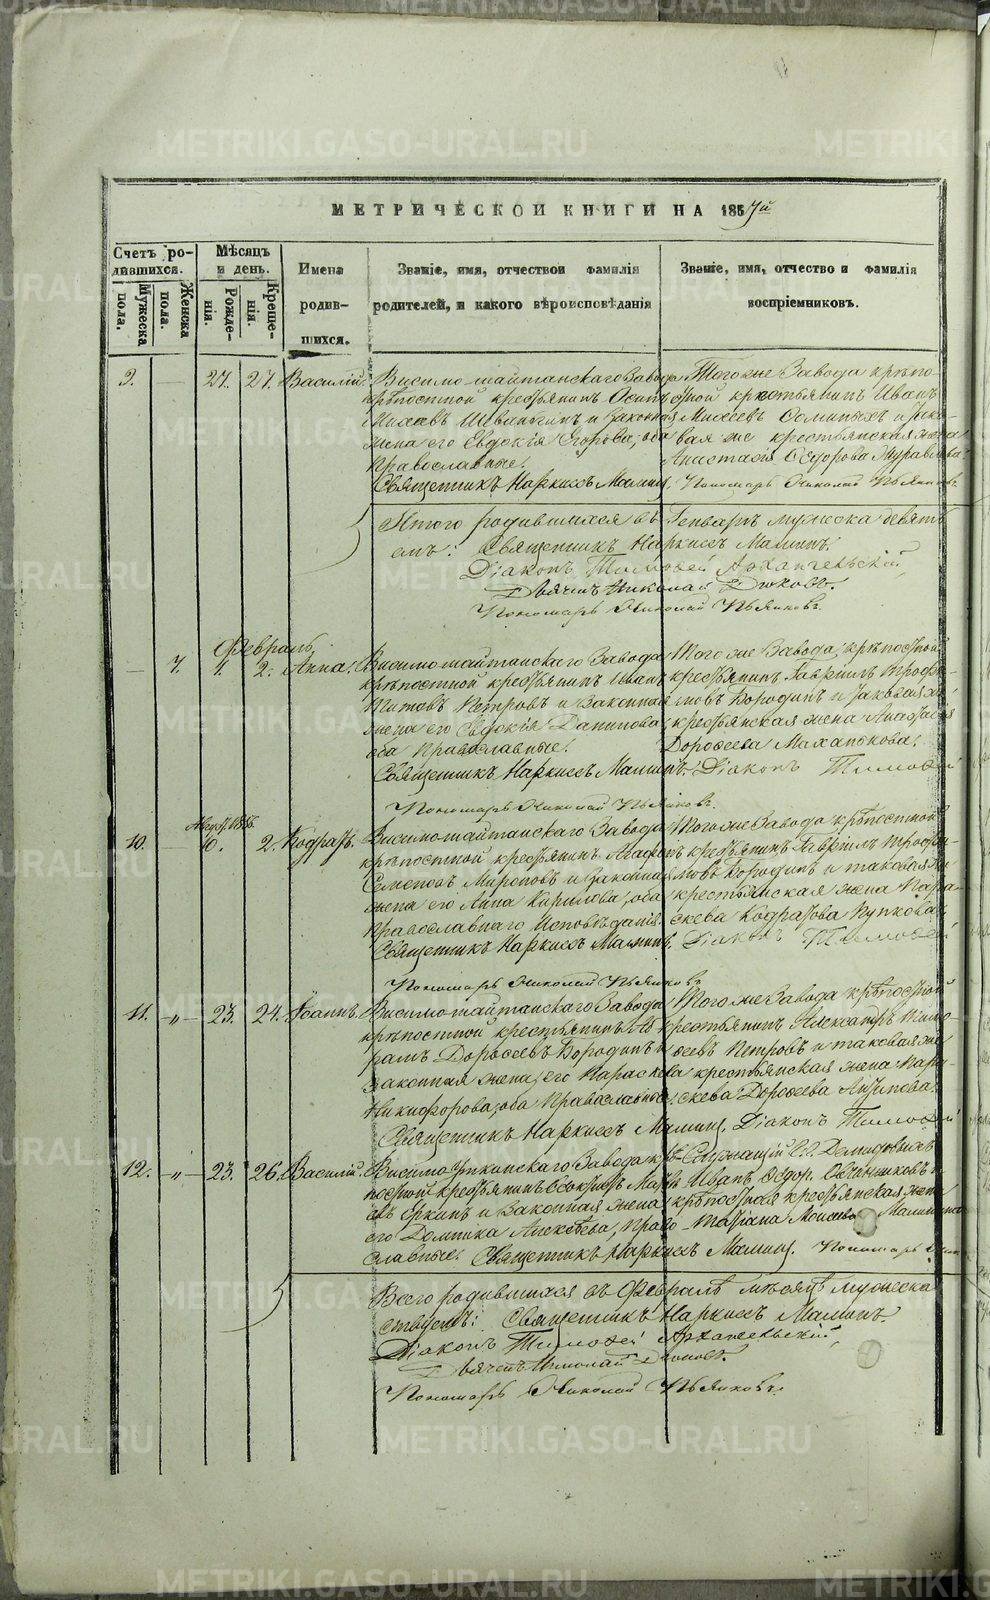 METRIKI.GASO-URAL.RU
МЕТРИЧЕСКОЙ КНИГИ НА 1857й
Счетъ ро-
дившихся.
Мужеска
пола.
Женска
пола.
Мѣсяцъ
и день.
Рожде-
нія.
Креще-
нія.
Имена
родив-
шихся.
Званіе, имя, отчествои фамилія
родителей, и какого вѣроисповѣданія
Званіе, имя, отчество и фамилія
воспріемниковъ.
9. — 27. 27. Василій.
Висимошайтанскаго Завода
крѣпостной крестьянинъ Осипъ
и Законная
жена его Евдокія Егорова, оба
Православные.
Священникъ Наркисъ Маминъ.
Тогоже Завода крѣпо-
стной крестьянинъ Иванъ
Моисеевъ
вая же крестьянская жена
Анастасія Ѳедорова Муравьева
Пономарь Николай Пьянковъ.
Итого родившихся въ Генварѣ мужеска девять
Священникъ Наркисъ Маминъ.
Діаконъ Тимоѳей Архангельскій,
Дьячекъ Николай Дюковъ.
Пономарь Николай Пьянковъ.
Февраль.
— 7. 1. 2. Анна.
Висимошайтанскаго Завода
крѣпостной крестьянинъ Иванъ
Титовъ Петровъ и Законная
жена его Евдокія Данилова,
оба Православные.
Священникъ Наркисъ Маминъ.
Пономарь Николай Пьянковъ.
Того же Завода, крѣпостной
крестьянинъ Гавріилъ Трофи-
мовъ Бородинъ и таковая же
крестьянская жена Анастасія
Дороѳеева Маханькова.
Діаконъ Тимоѳей
10. — 2. Кодратъ.
Висимошайтанскаго Завода
крѣпостной крестьянинъ Агафонъ
Семеновъ Мироновъ и Законная
жена его Анна Карилова, оба
Православнаго Исповѣданія.
Священникъ Наркисъ Маминъ.
Пономарь Николай Пьянковъ.
Тогоже Завода крѣпостной
крестьянинъ Гавріилъ Трофи-
мовъ Бородинъ и таковая же
крестьянская жена Пара-
скева Кодратова Пупкова.
Діаконъ Тимоѳей
11. — „ — 23. 24. Іоаннъ.
Висимошайтанскаго Завода
крѣпостной крестьянинъ Ав-
рамъ Дороѳеевъ Бородинъ и
законная жена его Параскева
Никифорова, оба Православные.
Священникъ Наркисъ Маминъ.
Того же Завода крѣпостной
крестьянинъ Александръ Тимо-
ѳеевъ Петровъ и таковая же
крестьянская жена Пара-
скева Дороѳеева Антипова.
Діаконъ Тимоѳей
12. — „ — 23. 26. Василій.
Висимо Уткинскаго Завода крѣ-
постной крестьянинъ
и Законная жена
его Домника Алексѣева, право-
славные. Священникъ Наркисъ Маминъ.
Служащій Г.г. Демидовыхъ
Иванъ Ѳедор. Овчинниковъ и
крѣпостная крестьянская жена
Татіана Моисеева Мамина
Пономарь
Всего родившихся въ Февралѣ мѣсяцѣ мужеска
Священникъ Наркисъ Маминъ.
Діаконъ Тимоѳей Архангельскій,
Дьячекъ Николай Дюковъ.
Пономарь Николай Пьянковъ.